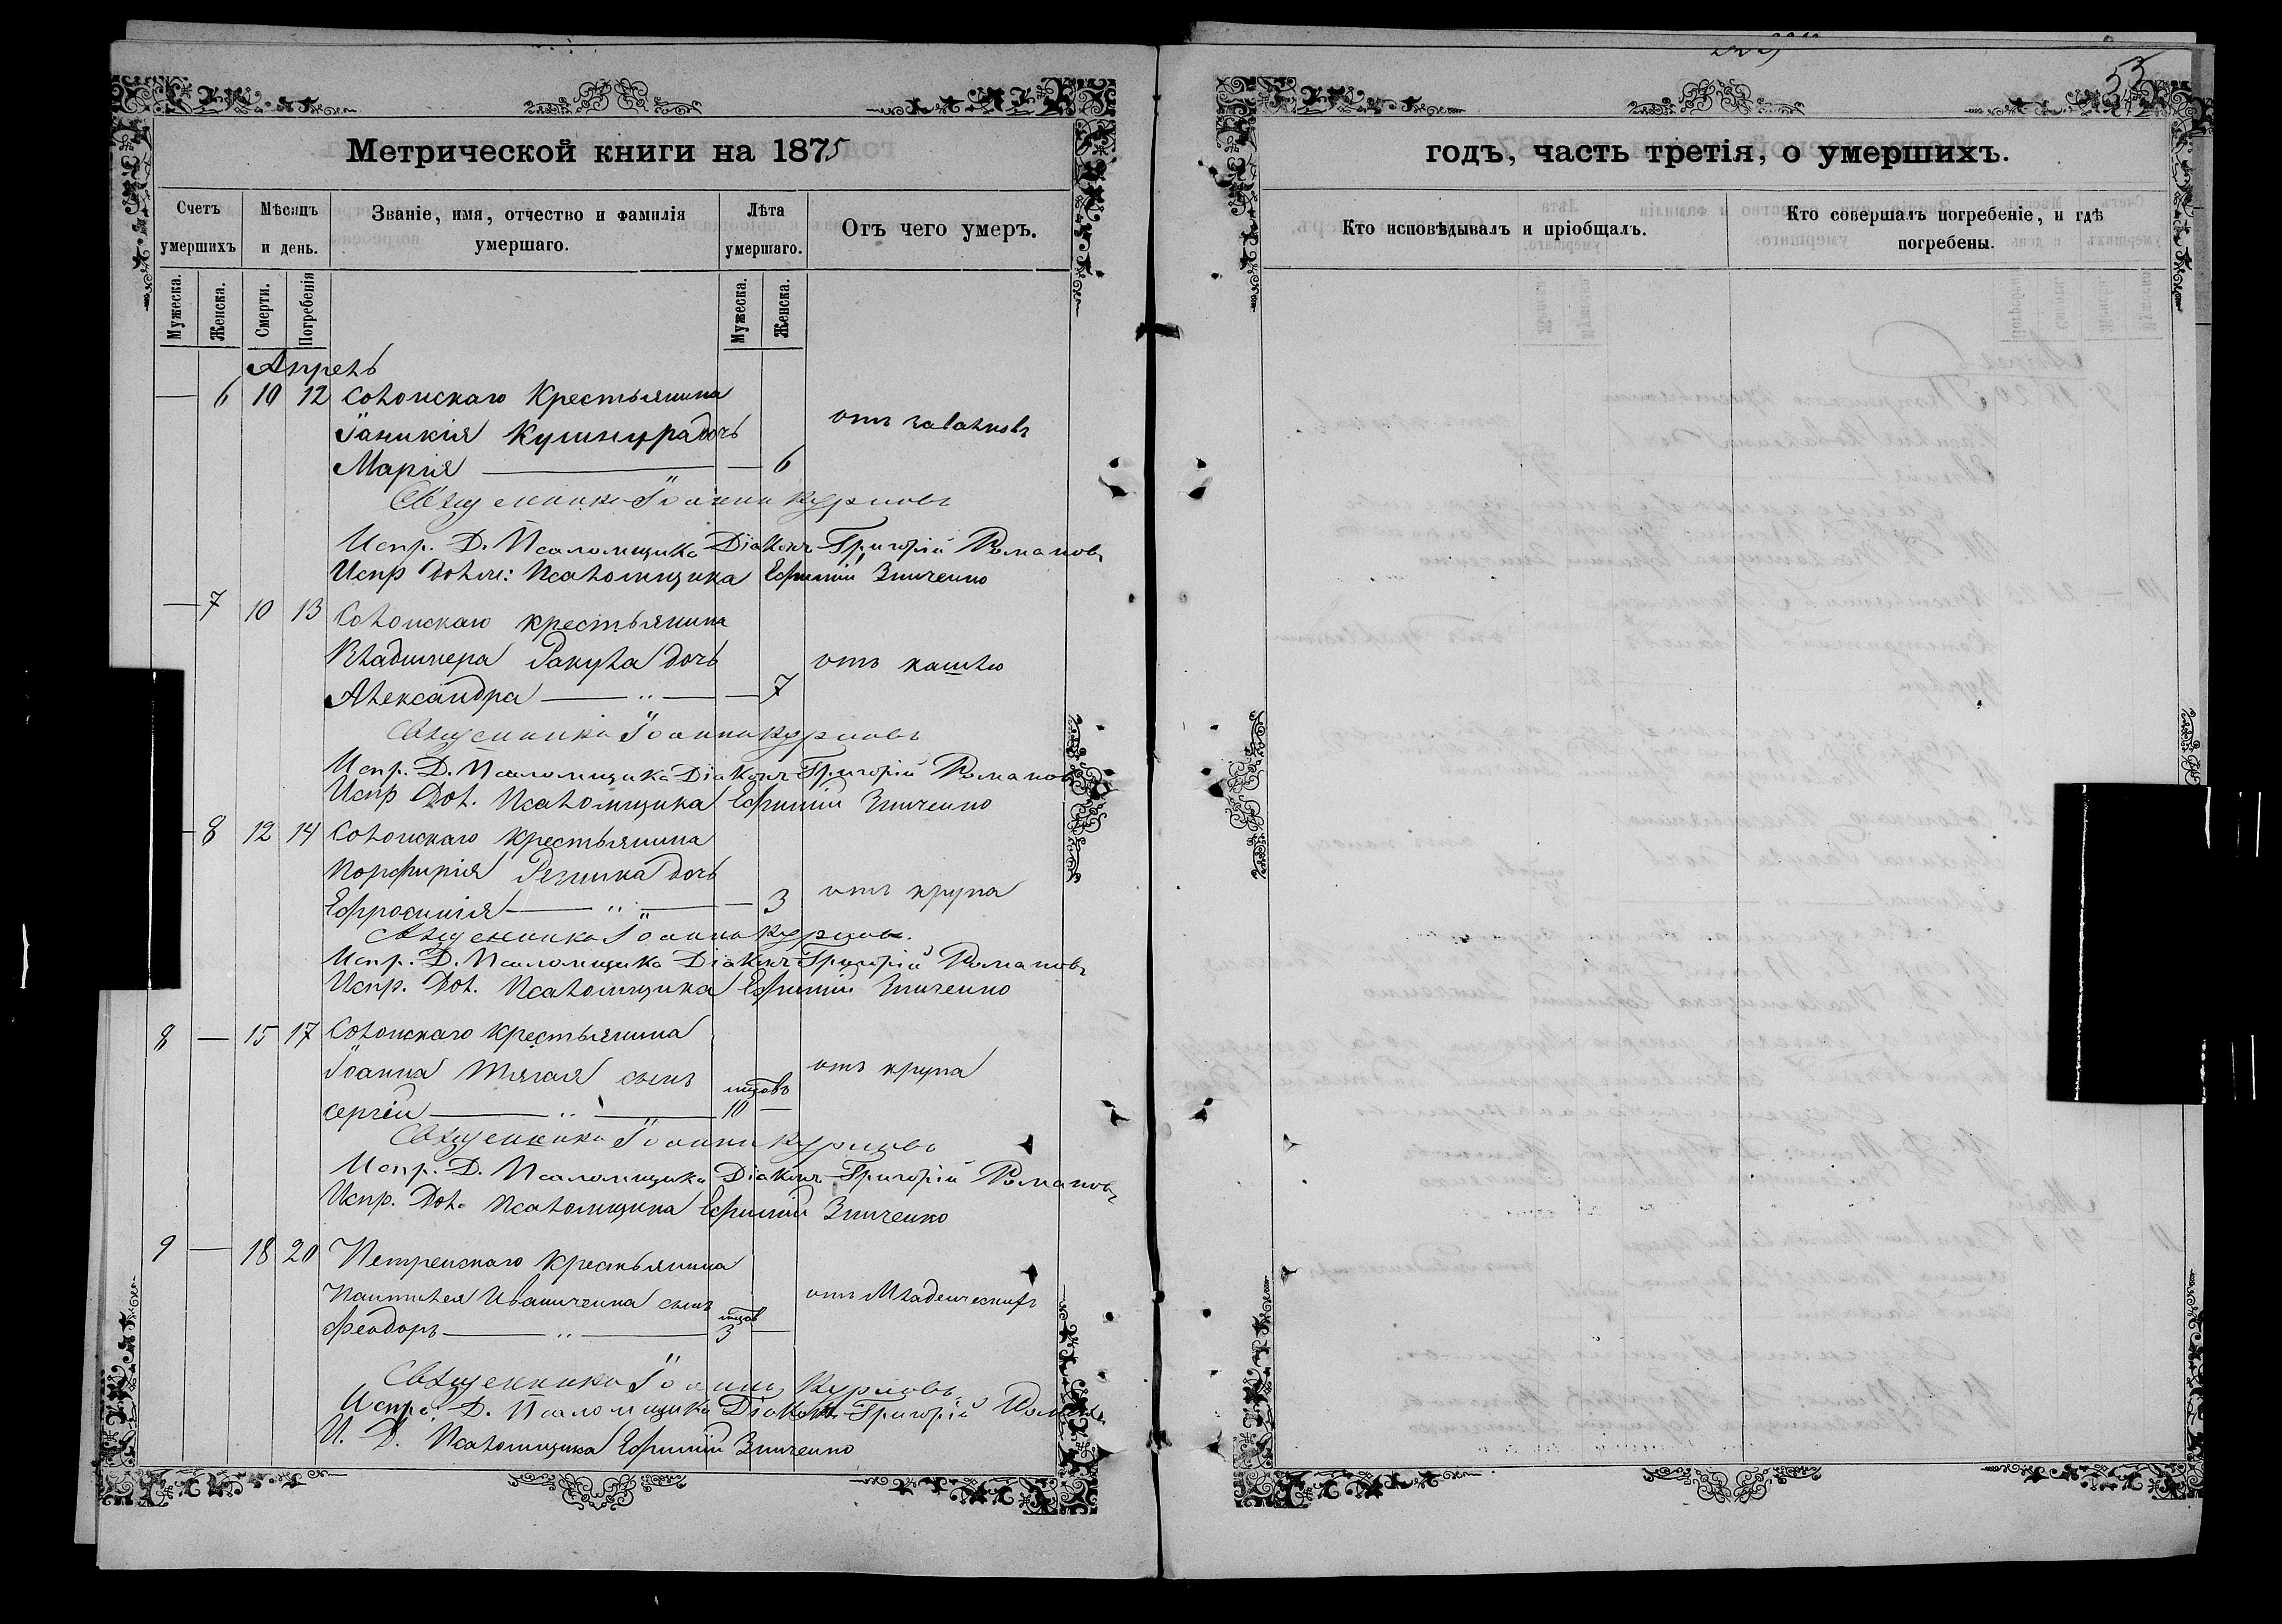 53
Метрической книги на 1875
годъ, часть третія, о умершихъ.
Счетъ умершихъ
Мѣсяцъ и день.
Званіе, имя, отчество и фамилія умершаго.
Лѣта умершаго.
Отъ чего умеръ.
Кто исповѣдывалъ и пріобщалъ.
Кто совершалъ погребеніе, и гдѣ погребены.
Мужеска.
Женска.
Смерти.
Погребенія
Мужеска.
Женска.
Апрель
— 6 10 12 Солонскаго Крестьянина
Іаникія Кушнира дочь
Марія — — 6
Священникъ Іоаннъ Курловъ
Испр. Д. Псаломщика Діаконъ Григорій Романовъ
Испр Долж: Псаломщика Ефимій Зинченко
— 7 10 13 Солонскаго крестьянина
Владимера Ракула дочь отъ кашлю
Александра — „ — — 7
Священникъ Іоаннъ Курловъ
Испр. Д. Псаломщика Діаконъ Григорій Романовъ
Испр Дол. Псаломщика Ефимій Зинченко
— 8 12 14 Солонскаго крестьянина
Порфирія дочь отъ крупа
Ефросинія — „ — — 3
Священникъ Іоаннъ Курловъ.
Испр. Д. Псаломщика Діаконъ Григорій Романовъ
Испр. Дол. Псаломщика Ефимій Зинченко
8 — 15 17 Солонскаго крестьянина
Іоанна Тягая сынъ отъ крупа
Сергій — „ — мцовъ 10 —
Священникъ Іоаннъ Курловъ
Испр. Д. Псаломщика Діаконъ Григорій Романовъ
Испр. Дол. Псаломщика Ефимій Зинченко
9 — 18 20 Петренскаго крестьянина
Пантилея Иваниченка сынъ отъ Младенческихъ
Феодоръ — „ — мцов 3 —
Священникъ Іоаннъ Курловъ
Испр. Д. Псаломщика Діаконъ Григорій
И. Д. Псаломщика Ефимій Зинченко